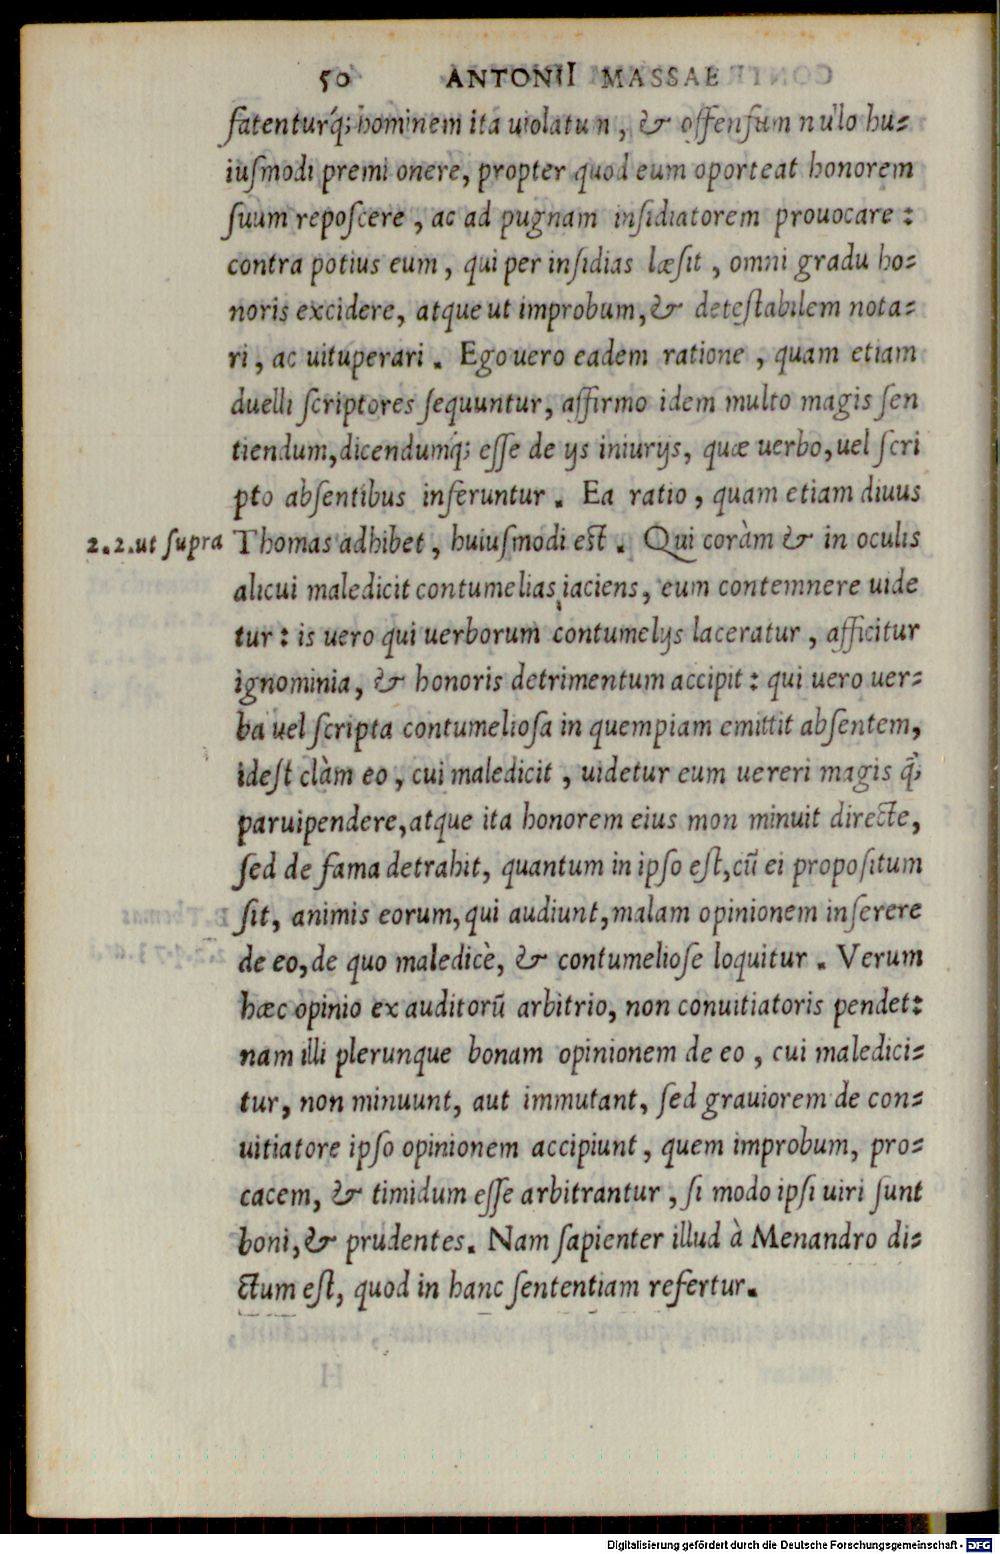 50 ANTONII MASSAE
fatenturq́; hominem ita uiolatu n, & offensum nullo hu=
iusmodi premi onere, propter quod eum oporteat honorem
suum reposcere, ac ad pugnam insidiatorem prouocare :
contra potius eum, qui per insidias læsit, omni gradu ho=
noris excidere, atque ut improbum, & detestabilem nota=
ri, ac uituperari. Ego uero eadem ratione, quam etiam
duelli scriptores sequuntur, affirmo idem multo magis sen
tiendum, dicendumq́; esse de ijs iniurijs, quæ uerbo, uel scri
pto absentibus inferuntur. Ea ratio, quam etiam diuus
2. 2. ut supra Thomas adhibet, huiusmodi est. Qui coràm & in oculis
alicui maledicit contumelias iaciens, eum contemnere uide
tur : is uero qui uerborum contumelijs laceratur, afficitur
ignominia, & honoris detrimentum accipit : qui uero uer=
ba uel scripta contumeliosa in quempiam emittit absentem,
idest clàm eo, cui maledicit, uidetur eum uereri magis q̃;
paruipendere, atque ita honorem eius mon minuit directe,
sed de fama detrahit, quantum in ipso est, cũ ei propositum
sit, animis eorum, qui audiunt, malam opinionem inserere
de eo, de quo maledicè, & contumeliose loquitur. Verum
hæc opinio ex auditorũ arbitrio, non conuitiatoris pendet:
nam illi plerunque bonam opinionem de eo, cui maledici=
tur, non minuunt, aut immutant, sed grauiorem de con=
uitiatore ipso opinionem accipiunt, quem improbum, pro=
cacem, & timidum esse arbitrantur, si modo ipsi uiri sunt
boni, & prudentes. Nam sapienter illud à Menandro di=
ctum est, quod in hanc sententiam refertur.
Digitalisierung gefördert durch die Deutsche Forschungsgemeinschaft - DFG